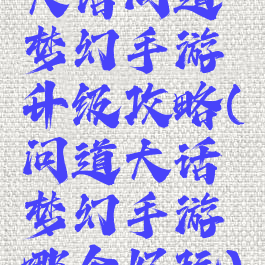 大话问道
梦幻手游
升级攻略(
问道大话
梦幻手游
哪个好玩)